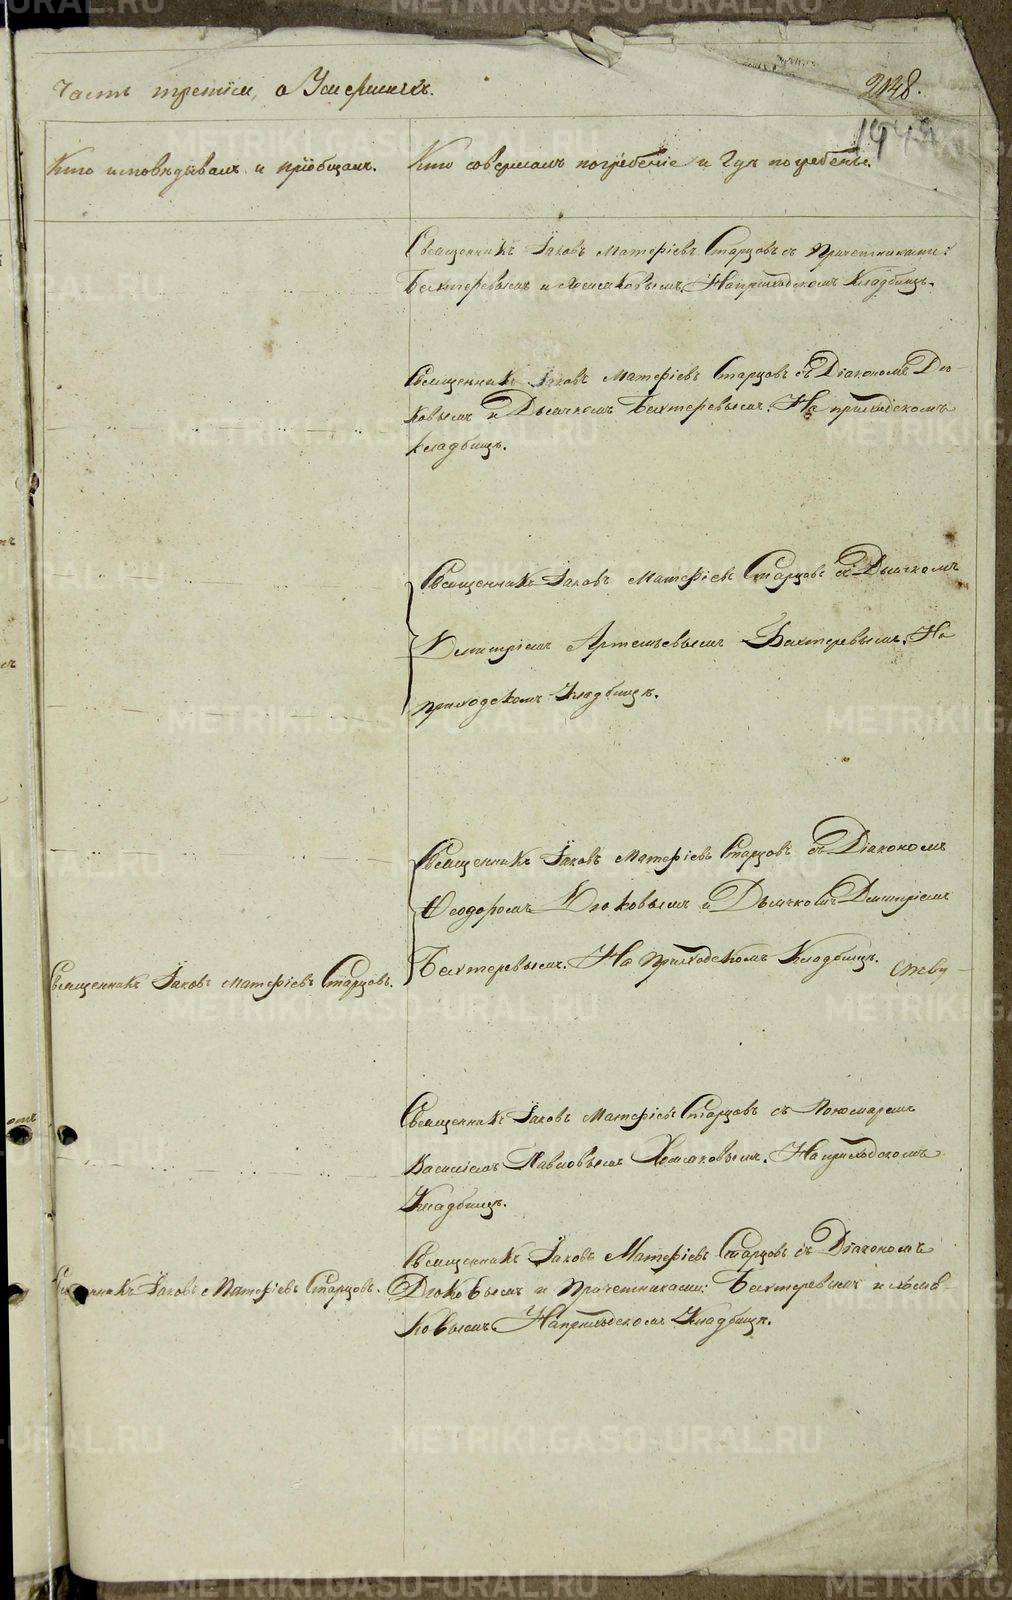 Часть третія, о Умершихъ.
2148.
Кто исповѣдывалъ и пріобщалъ.
Кто совершалъ погребеніе и гдѣ погребены.
Священникъ Іаковъ Матѳіевъ Старцовъ съ Причетниками:
Бехтеревымъ и Хомяковымъ. На приходскомъ Кладбищѣ.
Священникъ Іаковъ Матѳіевъ Старцовъ съ Діакономъ Дю-
ковымъ и Дьячкомъ Бехтеревымъ. На приходскомъ
кладбищѣ.
Священникъ Іаковъ Матѳіевъ Старцовъ съ Дьячкомъ
Димитріемъ Артемьевымъ Бехтеревымъ. На
приходскомъ Кладбищѣ.
Священникъ Іаковъ Матѳіевъ Старцовъ съ Діакономъ
Ѳеодоромъ Дюковымъ и Дьячкомъ Димитріемъ
Бехтеревымъ. На приходскомъ Кладбищѣ.
Священникъ Іаковъ Матѳіевъ Старцовъ.
Священникъ Іаковъ Матѳіевъ Старцовъ съ Пономаремъ
Василіемъ Павловымъ Хомяковымъ. На приходскомъ
Кладбищѣ.
Священникъ Іаковъ Матѳіевъ Старцовъ съ Діакономъ
Священникъ Іаковъ Матѳіевъ Старцовъ.
Дюковымъ и Причетниками: Бехтеревымъ и Хомя-
ковымъ На приходскомъ Кладбищѣ.
METRIKI.GASO-URAL.RU